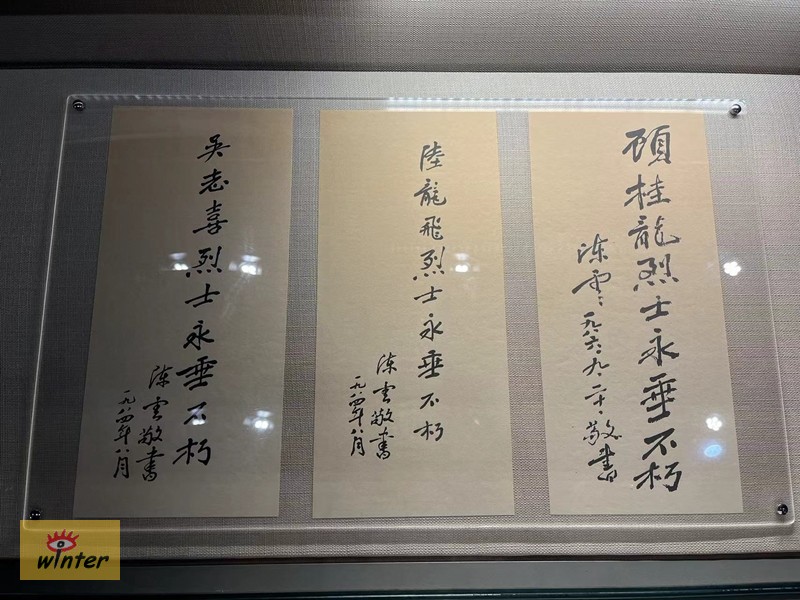 顾桂龍烈士永垂不朽
陈雲一九八六.九.二十.敬書
陸龍飛烈士永垂不朽
陈雲敬書
一九八四年八月
吴志喜烈士永垂不朽
陈雲敬書
一九八四年八月
winter